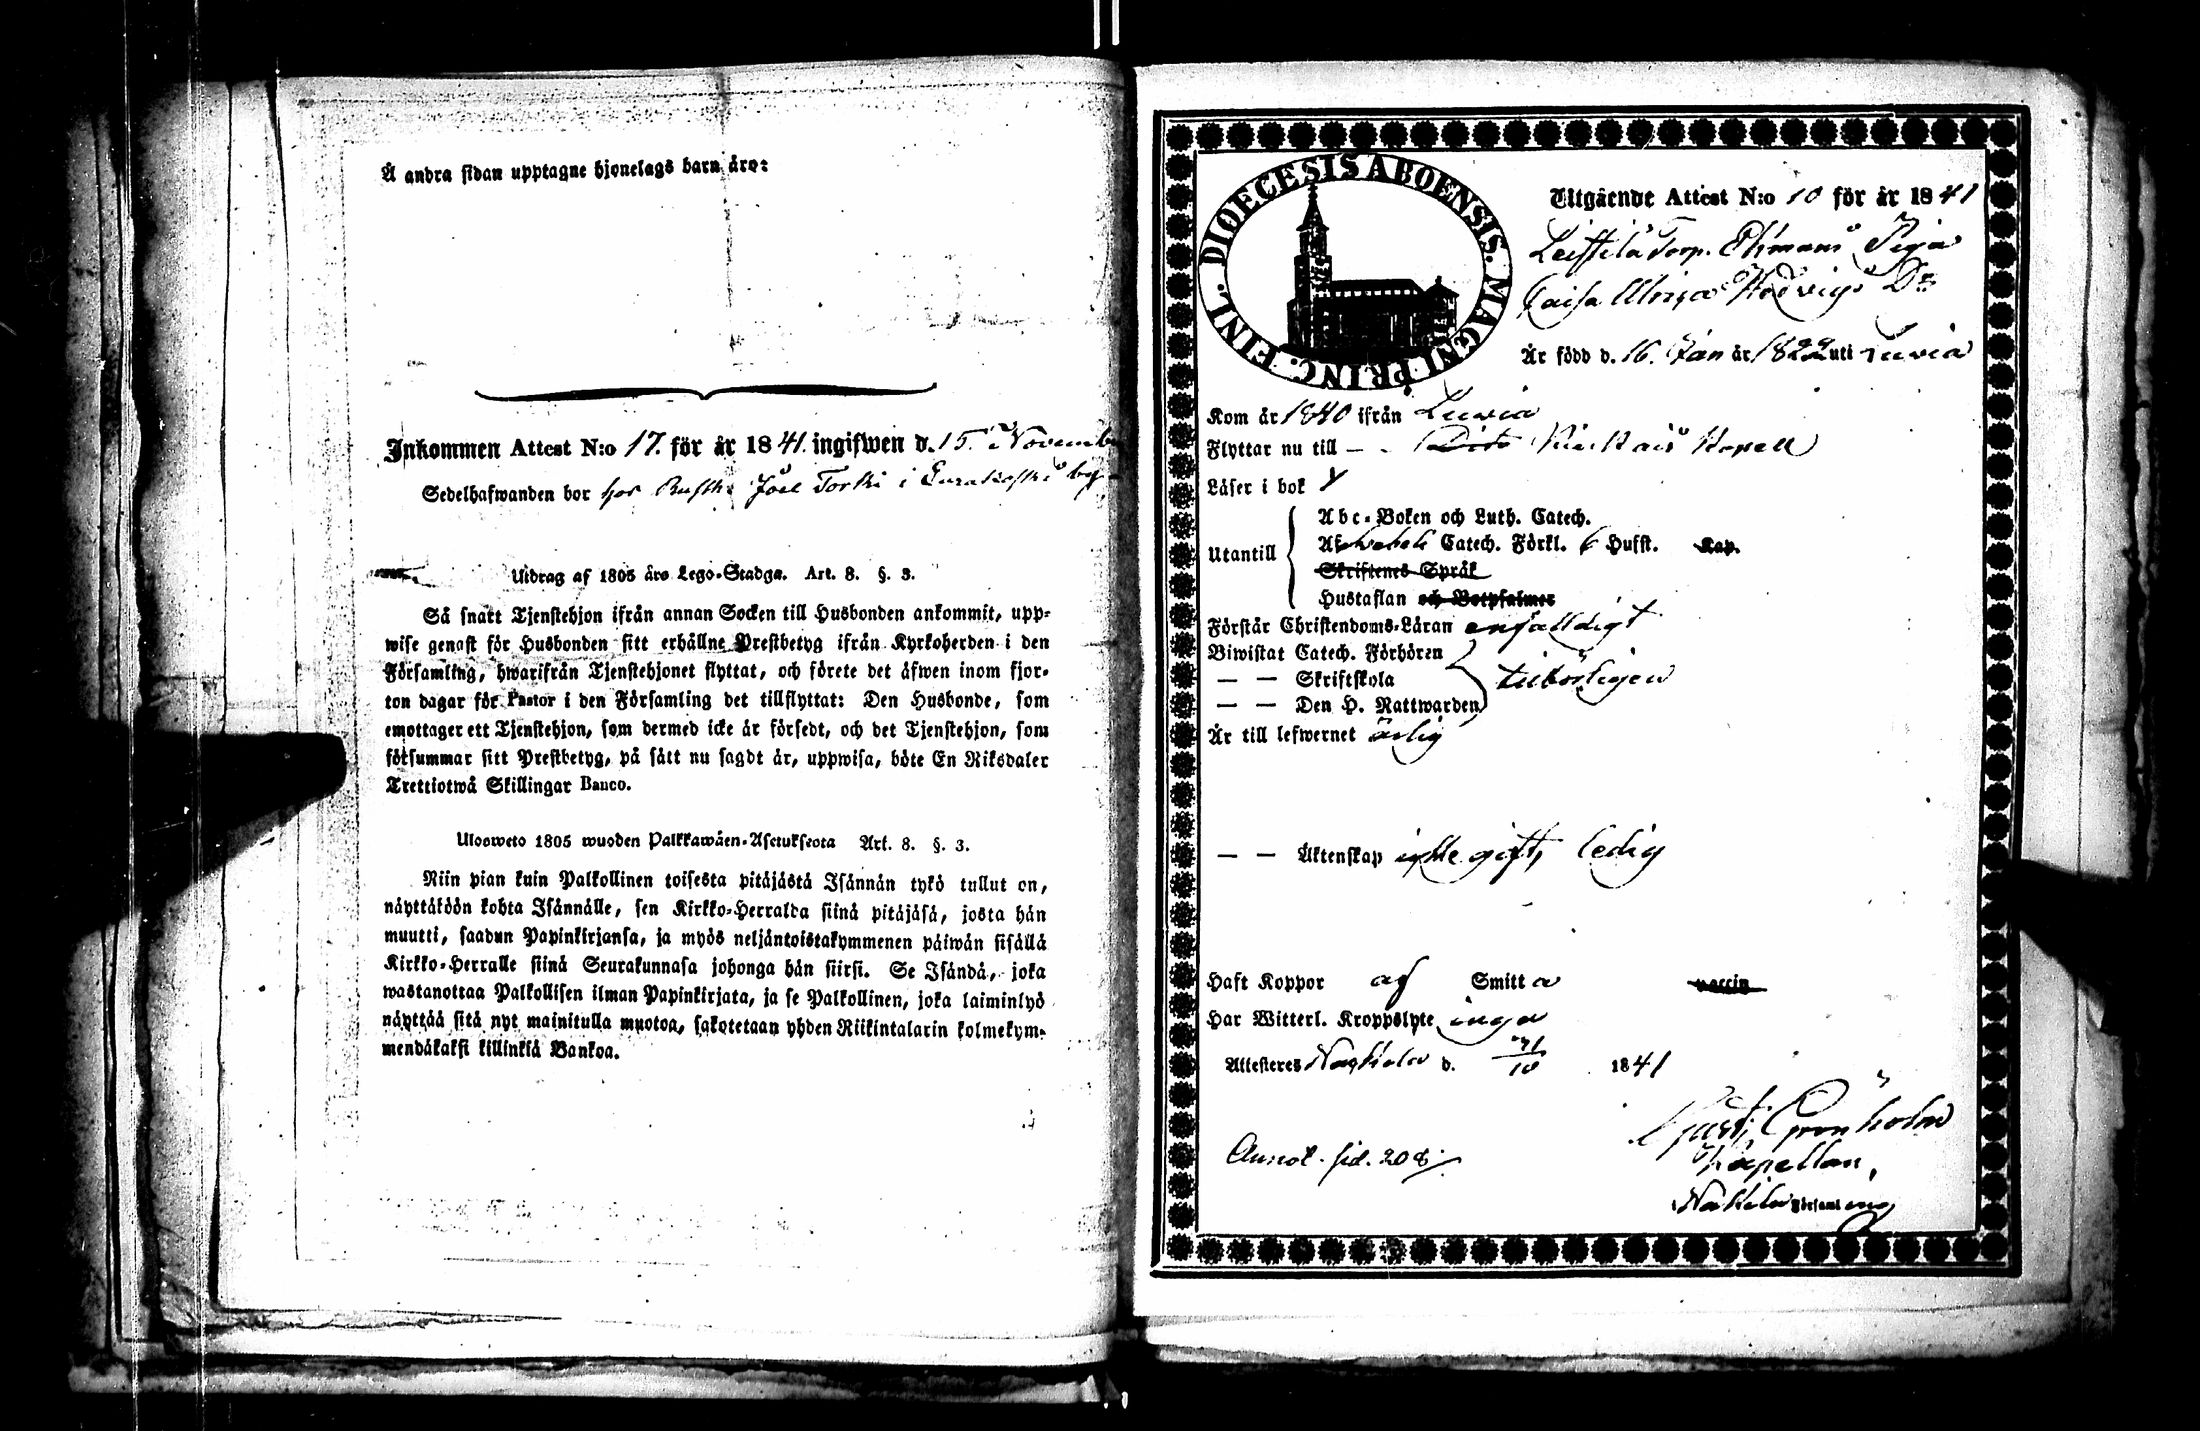 Å andra sidan upptagne hjonelags barn äro:
Inkommen Attest N:o 17. för år 1841. ingifwen d. 15. Novemb
Sedelhafwanden bor hos Rusth. Joel Torki i Eurakoski by
Utdrag af 1805 års Lego-Stadga. Art. 8. §. 3.
Så snart Tjenstehjon ifrån annan Socken till Husbonden ankommit, upp-
wise genast för Husbonden sitt erhållne Prestbetyg ifrån Kyrkoherden i den
Församling, hwarifrån Tjenstehjonet flyttat, och förete det äfwen inom fjor-
ton dagar för Pastor i den Församling det tillflyttat: Den Husbonde, som
emottager ett Tjenstehjon, som dermed icke är försedt, och det Tjenstehjon, som
försummar sitt Prestbetyg, på sätt nu sagdt är, uppwisa, böte En Riksdaler
Trettiotwå Skillingar Banco.
Uloosweto 1805 wuoden Palkkawäen-Asetuksesta Art. 8. §. 3.
Niin pian kuin Palkollinen toisesta pitäjästä Isännän tykö tullut on,
näyttäköön kohta Isännälle, sen Kirkko-Herralda siinä pitäjäsä, josta hän
muutti, saadun Papinkirjansa, ja myös neljäntoistakymmenen päiwän sisällä
Kirkko-Herralle siinä Seurakunnasa johonga hän siirsi. Se Isändä, joka
wastanottaa Palkollisen ilman Papinkirjata, ja se Palkollinen, joka laiminlyö
näyttää sitä nyt mainitulla muotoa, sakotetaan yhden Riikintalarin kolmekym-
mendäkaksi killinkiä Bankoa.
DIOECESIS ABOENSIS. MAGNI PRINC. FINL.
Utgående Attest N:o 10 för år 1841
Leistilä Torp. Ekmans Piga
Caisa Ulrica Hedvigs Dr
Är född d. 16. Jan år 1822 uti Luvia
Kom år 1840 ifrån Luvia
Flyttar nu till — Kapell
Läser i bok
Utantill
Abc-Boken och Luth. Catech.
Catech. Förkl. 6 Hufst. Kap.
Skriftenes Språk
Hustaflan och Botpsalmer
Förstår Christendoms-Läran enfalldigt
Biwistat Catech. Förhören
— — Skriftskola tilbörligen
— — Den H. Nattwarden
Är till lefwernet ärlig
— — Äktenskap icke gift, ledig
Haft Koppor af Smitta vaccin
Har Witterl. Kroppslyte inga
Attesteres Nakkila d. 31/10 1841
Gust. Grönholm
Kapellan,
Annot. sid. 208.
Nakkila Församling